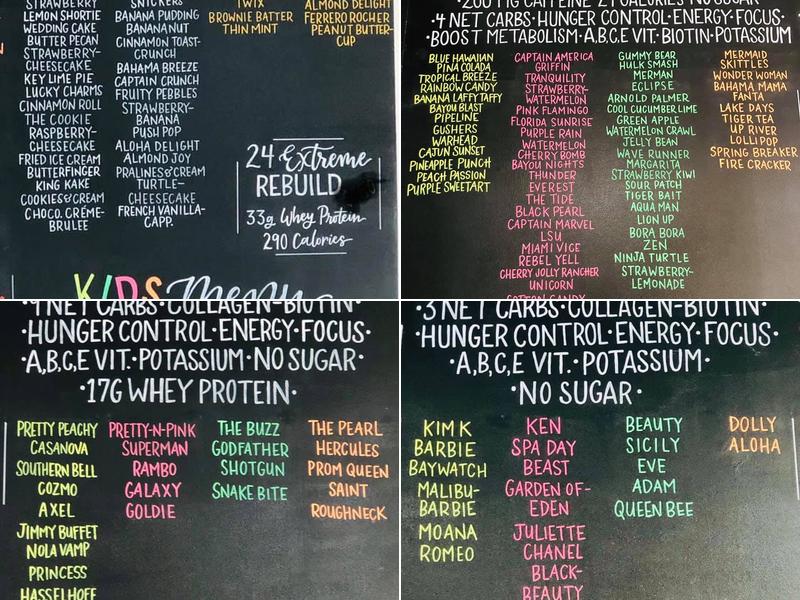 STRAWBERRY
LEMON SHORTIE
WEDDING CAKE
BUTTER PECAN
STRAWBERRY-
CHEESECAKE
KEY LIME PIE
LUCKY CHARMS
CINNAMON ROLL
THE COOKIE
RASPBERRY-
CHEESECAKE
FRIED ICE CREAM
BUTTERFINGER
KING KAKE
COOKIES&CREAM
CHOCO. CRÉME-
BRULEE
SNICKERS
BANANA PUDDING
BANANA NUT
CINNAMON TOAST-
CRUNCH
BAHAMA BREEZE
CAPTAIN CRUNCH
FRUITY PEBBLES
STRAWBERRY-
BANANA
PUSH POP
ALOHA DELIGHT
ALMOND JOY
PRALINES&CREAM
TURTLE-
CHEESECAKE
FRENCH VANILLA-
CAPP.
TWIX
BROWNIE BATTER
THIN MINT
ALMOND DELIGHT
FERRERO ROCHER
PEANUT BUTTER-
CUP
24 Extreme
REBUILD
33g Whey Protein
290 Calories
KIDS Menu
200 MG CAFFEINE 21 CALORIES NO SUGAR
·4 NET CARBS·HUNGER CONTROL·ENERGY·FOCUS·
·BOOST METABOLISM·A,B,C,E VIT.·BIOTIN·POTASSIUM
BLUE HAWAIIAN
PINA COLADA
TROPICAL BREEZE
RAINBOW CANDY
BANANA LAFFY TAFFY
BAYOU BLAST
PIPELINE
GUSHERS
WARHEAD
CAJUN SUNSET
PINEAPPLE PUNCH
PEACH PASSION
PURPLE SWEETART
CAPTAIN AMERICA
GRIFFIN
TRANQUILITY
STRAWBERRY-
WATERMELON
PINK FLAMINGO
FLORIDA SUNRISE
PURPLE RAIN
WATERMELON
CHERRY BOMB
BAYOU NIGHTS
THUNDER
EVEREST
THE TIDE
BLACK PEARL
CAPTAIN MARVEL
LSU
MIAMI VICE
REBEL YELL
CHERRY JOLLY RANCHER
UNICORN
COTTON CANDY
GUMMY BEAR
HULK SMASH
MERMAN
ECLIPSE
ARNOLD PALMER
COOL CUCUMBER LIME
GREEN APPLE
WATERMELON CRAWL
JELLY BEAN
WAVE RUNNER
MARGARITA
STRAWBERRY KIWI
SOUR PATCH
TIGER BAIT
AQUA MAN
LION UP
BORA BORA
ZEN
NINJA TURTLE
STRAWBERRY-
LEMONADE
MERMAID
SKITTLES
WONDER WOMAN
BAHAMA MAMA
FANTA
LAKE DAYS
TIGER TEA
UP RIVER
LOLLIPOP
SPRING BREAKER
FIRE CRACKER
·4 NET CARBS·COLLAGEN·BIOTIN·
·HUNGER CONTROL·ENERGY·FOCUS·
·A,B,C,E VIT.·POTASSIUM·NO SUGAR·
·17G WHEY PROTEIN·
PRETTY PEACHY
CASANOVA
SOUTHERN BELL
COZMO
AXEL
JIMMY BUFFET
NOLA VAMP
PRINCESS
HASSELHOFF
PRETTY-N-PINK
SUPERMAN
RAMBO
GALAXY
GOLDIE
THE BUZZ
GODFATHER
SHOTGUN
SNAKE BITE
THE PEARL
HERCULES
PROM QUEEN
SAINT
ROUGHNECK
·3 NET CARBS·COLLAGEN·BIOTIN·
·HUNGER CONTROL·ENERGY·FOCUS·
·A,B,C,E VIT.·POTASSIUM·
·NO SUGAR·
KIM K
BARBIE
BAYWATCH
MALIBU-
BARBIE
MOANA
ROMEO
KEN
SPA DAY
BEAST
GARDEN OF-
EDEN
JULIETTE
CHANEL
BLACK-
BEAUTY
BEAUTY
SICILY
EVE
ADAM
QUEEN BEE
DOLLY
ALOHA